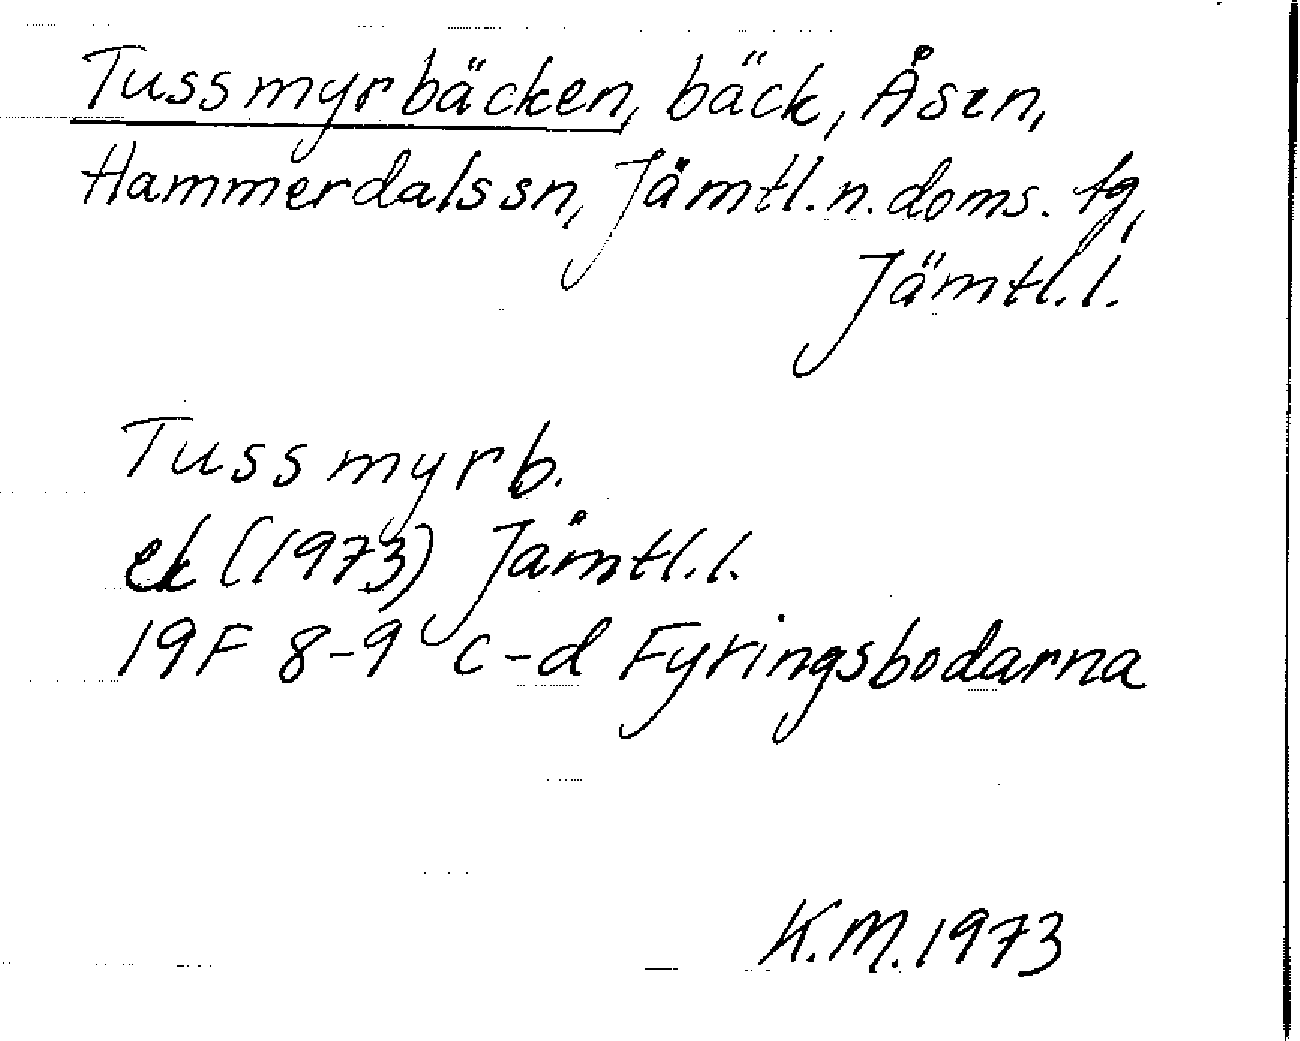 Tussmyrbäcken, bäck, Åsen,
Hammerdals sn, Jämtl. n. doms. tg,
Jämtl. l.
Tussmyrb.
ek (1973) Jämtl. l.
19F 8-9 c-d Fyringsbodarna
K.M. 1973